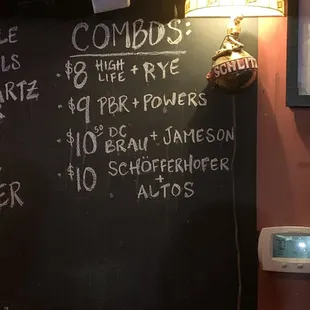 COMBOS:
$8 HIGH LIFE + RYE
$9 PBR + POWERS
$10.50 DC BRAU + JAMESON
$10 SCHÖFFERHOFER
+
ALTOS
SCHLITZ
LE
LS
RTZ
ER